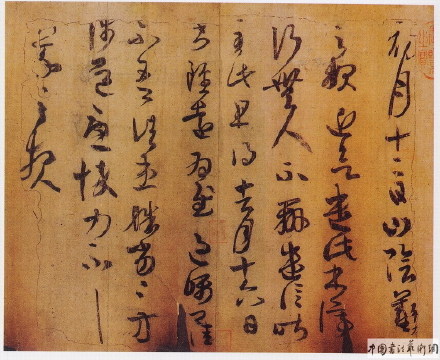 初月十二日山陰羲
之報近欲遣此書停
行無人不辦遣信昨
至此且得去月十六日
書雖遠為慰過囑卿佳
不吾諸患殊劣殊劣方
涉道憂悴力不具
羲之報
中国书法艺术網